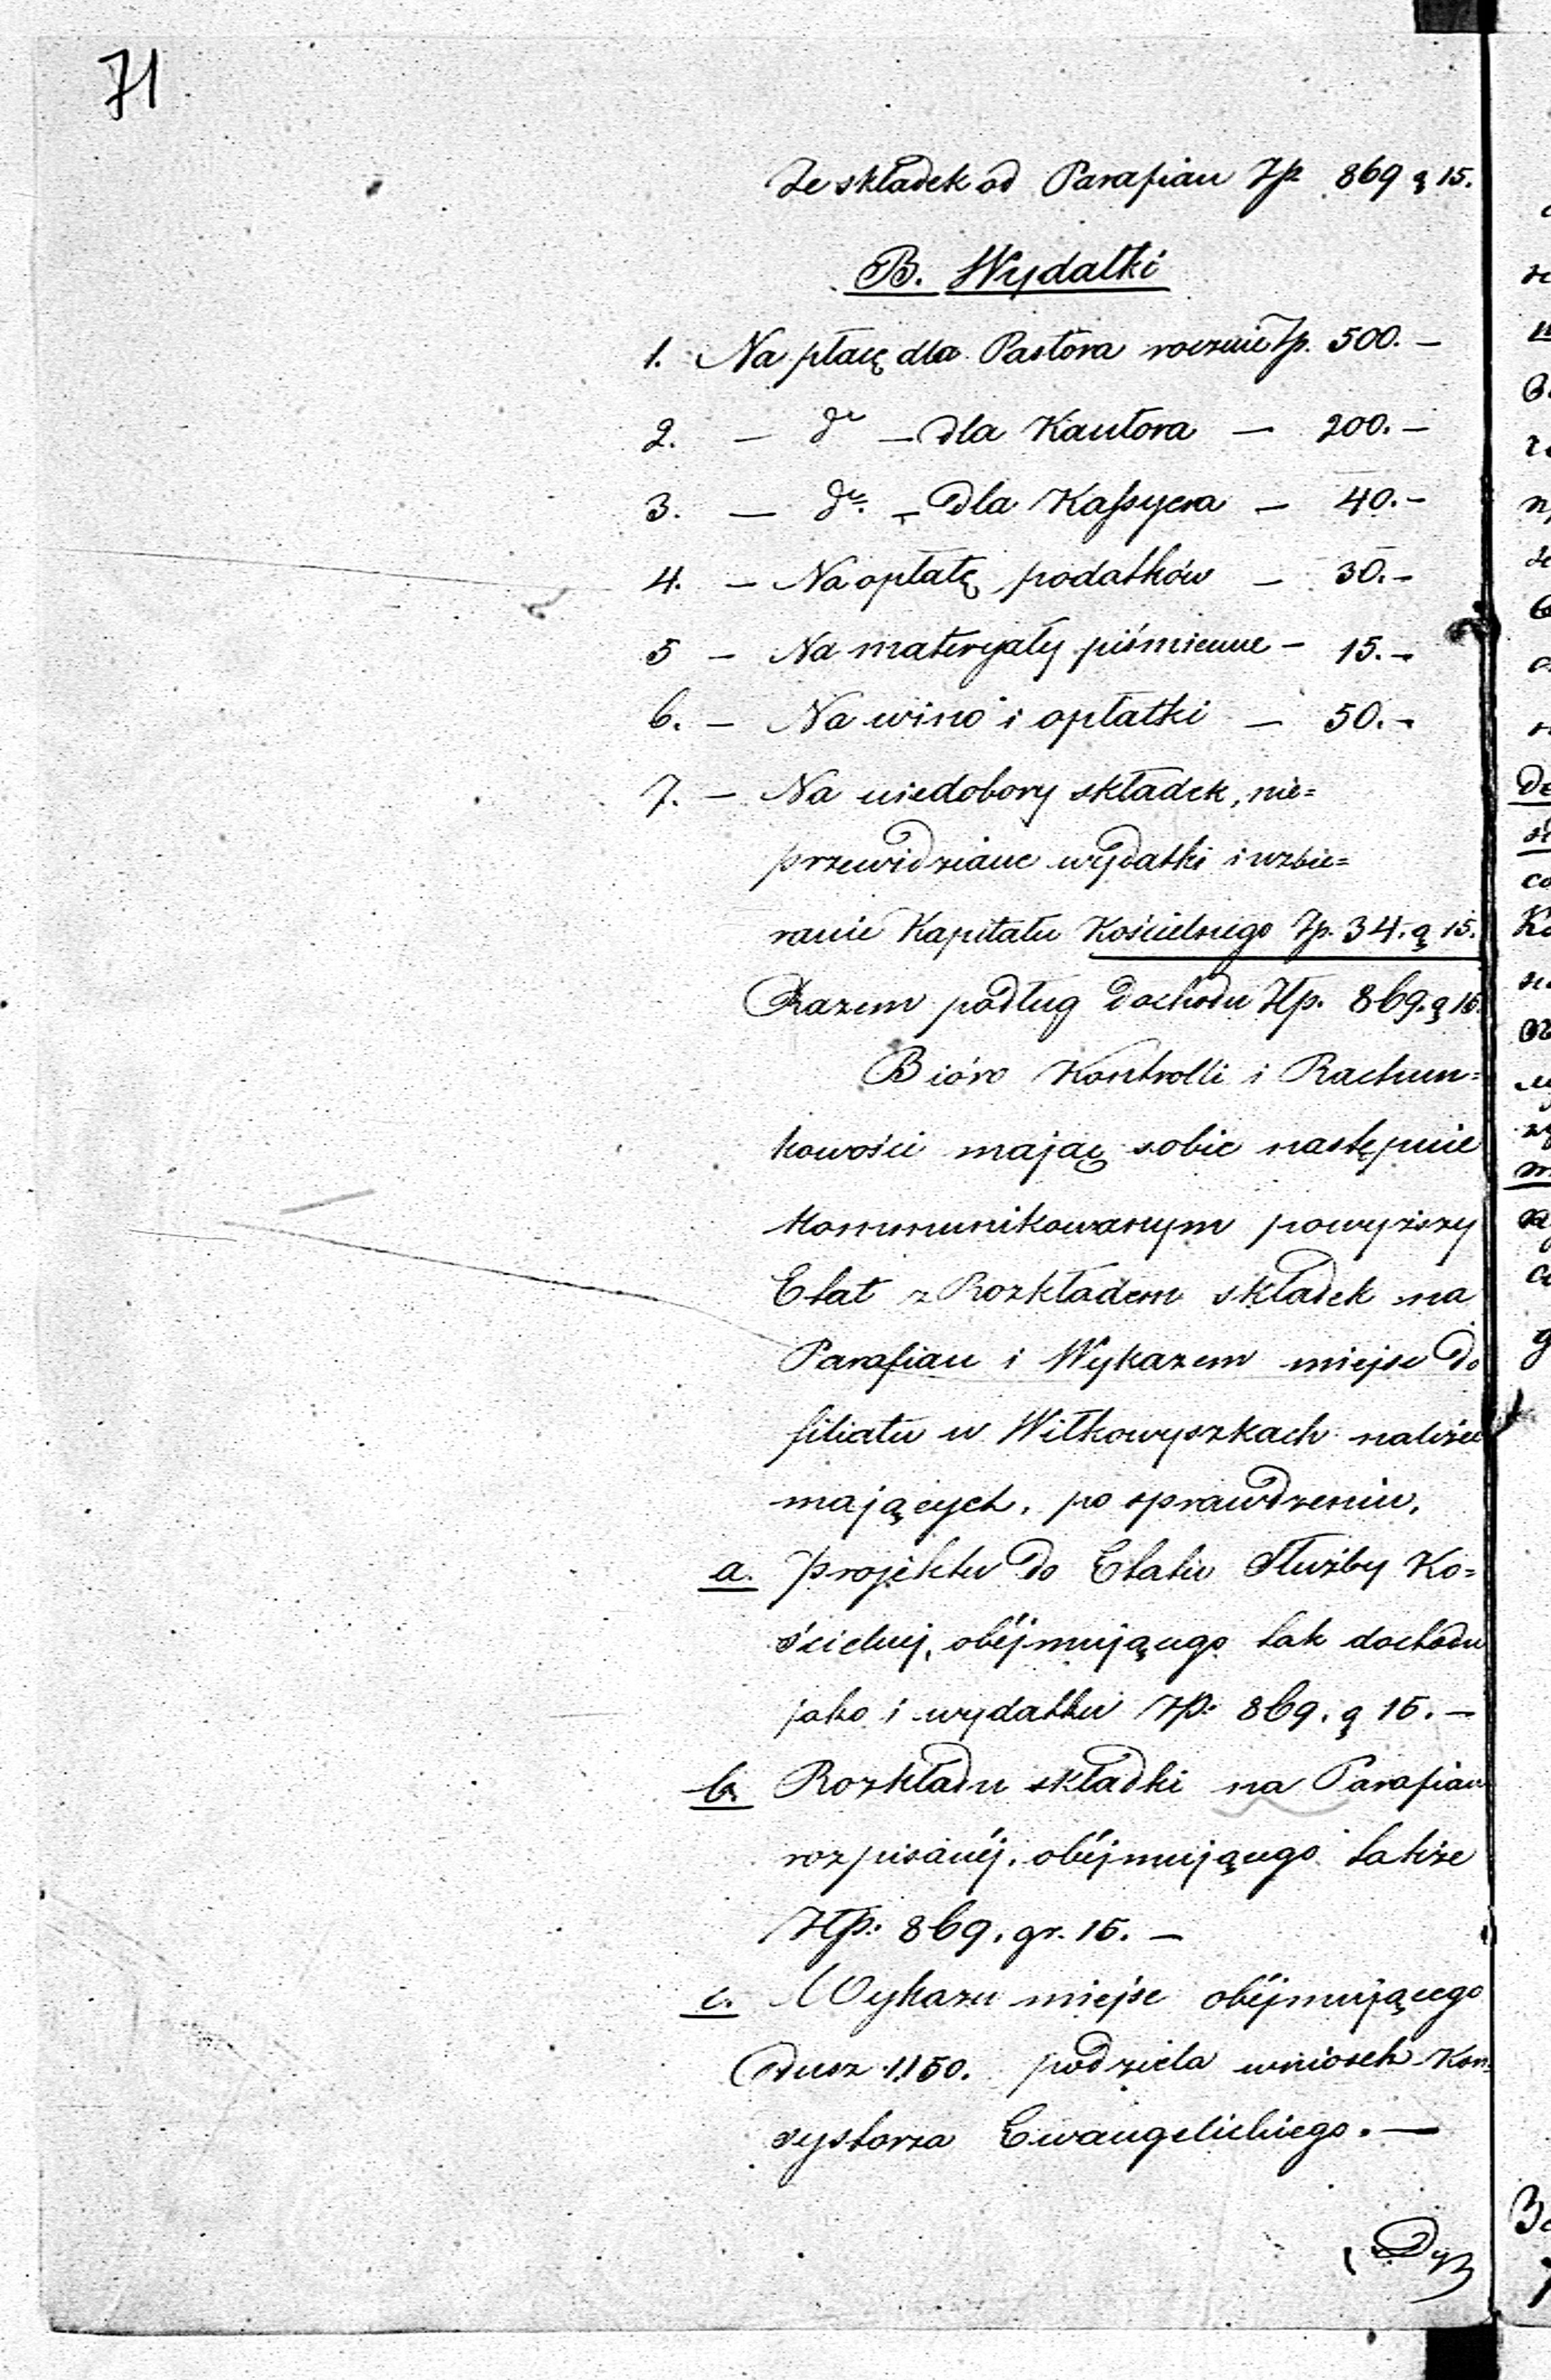 71
Ze składek od Parafian Złp 869 g 15.
B. Wydatki
1. Na płacę dla Pastora rocznie Zp. 500. —
2. — do — dla Kantora — 200. —
3. — do. — dla Kassyera — 40. —
4. — Na opłatę podatków — 30. —
5 — Na materyały piśmienne — 15. —
6. — Na wino i opłatki — 50. —
7. — Na niedobory składek, nie=
przewidziane wydatki i uzbie=
ranie Kapitału Kościelnego Zp. 34. g 15.
Razem podług dochodu Złp. 869. g 15.
Bióro Kontrolli i Rachun=
kowości mając sobie następnie
kommunikowanym powyższy
Etat z Rozkładem składek na
Parafian i Wykazem miejsc do
filiału w Wiłkowyszkach należeć
mających, po sprawdzeniu,
a. projektu do Etatu Służby Ko=
ścielnej, obéjmującego tak dochodu
jako i wydatku Zp: 869. g 15. —
b. Rozkładu składki na Parafian
rozpisanéj, obéjmującego także
Złp: 869. gr. 15. —
c. Wykazu miejsc obéjmującego
dusz 1150. podziela wniosek Kon=
systorza Ewangelickiego. —